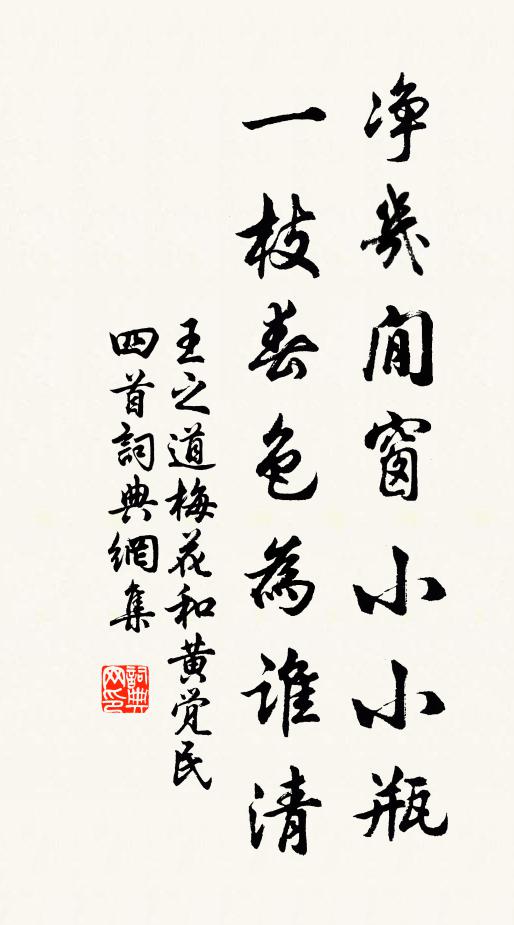 净几间窗小小瓶
一枝春色為谁清
王之道梅花和黄觉民
四首詞典網集
詞典网印